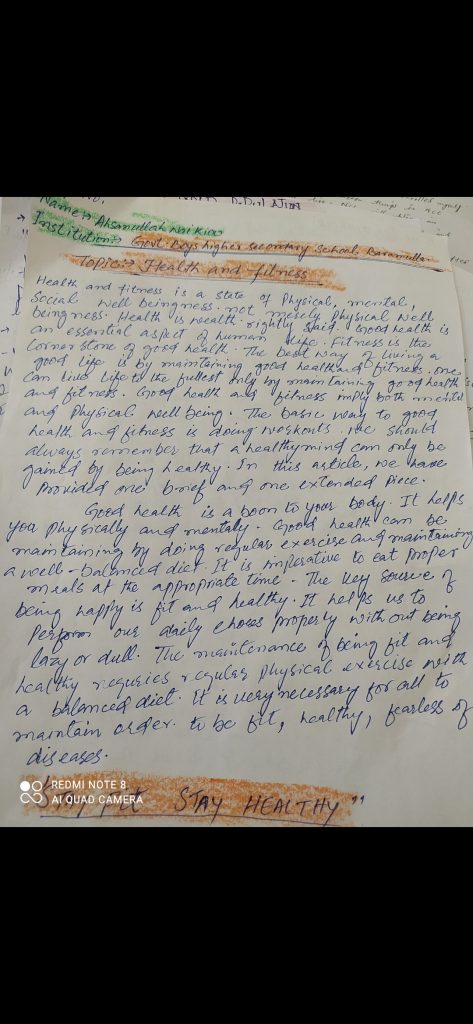 Name:> Ahsanullah
Institution:> Govt. Boys higher secondary school. Baramulla
Topic:> Health and fitness
Health and fitness is a state of Physical, mental,
Social well beingness. not merely physical well
beingness. Health is wealth. rightly said. Good health is
an essential aspect of human life. Fitness is the
Corner stone of good health. The best way of living a
good life is by maintaining good health and fitness. one
can live life to the fullest only by maintaining good health
and fitness. Good health and fitness imply both mental
and physical well being. The basic way to good
health and fitness is doing workouts. We should
always remember that a healthy mind can only be
gained by being healthy. In this article, we have
provided one brief and one extended piece.
Good health is a boon to your body. It helps
you physically and mentally. Good health can be
maintaining by doing regular exercise and maintaining
a well-balanced diet. It is imperative to eat proper
meals at the appropriate time. The key source of
being happy is fit and healthy. It helps us to
perform our daily chores properly with out being
lazy or dull. The maintenance of being fit and
healthy requries regular physical exercise with
a balanced diet. It is very necessary for all to
maintain order. to be fit, healthy, fearless of
diseases.
STAY HEALTHY"
REDMI NOTE 8
AI QUAD CAMERA